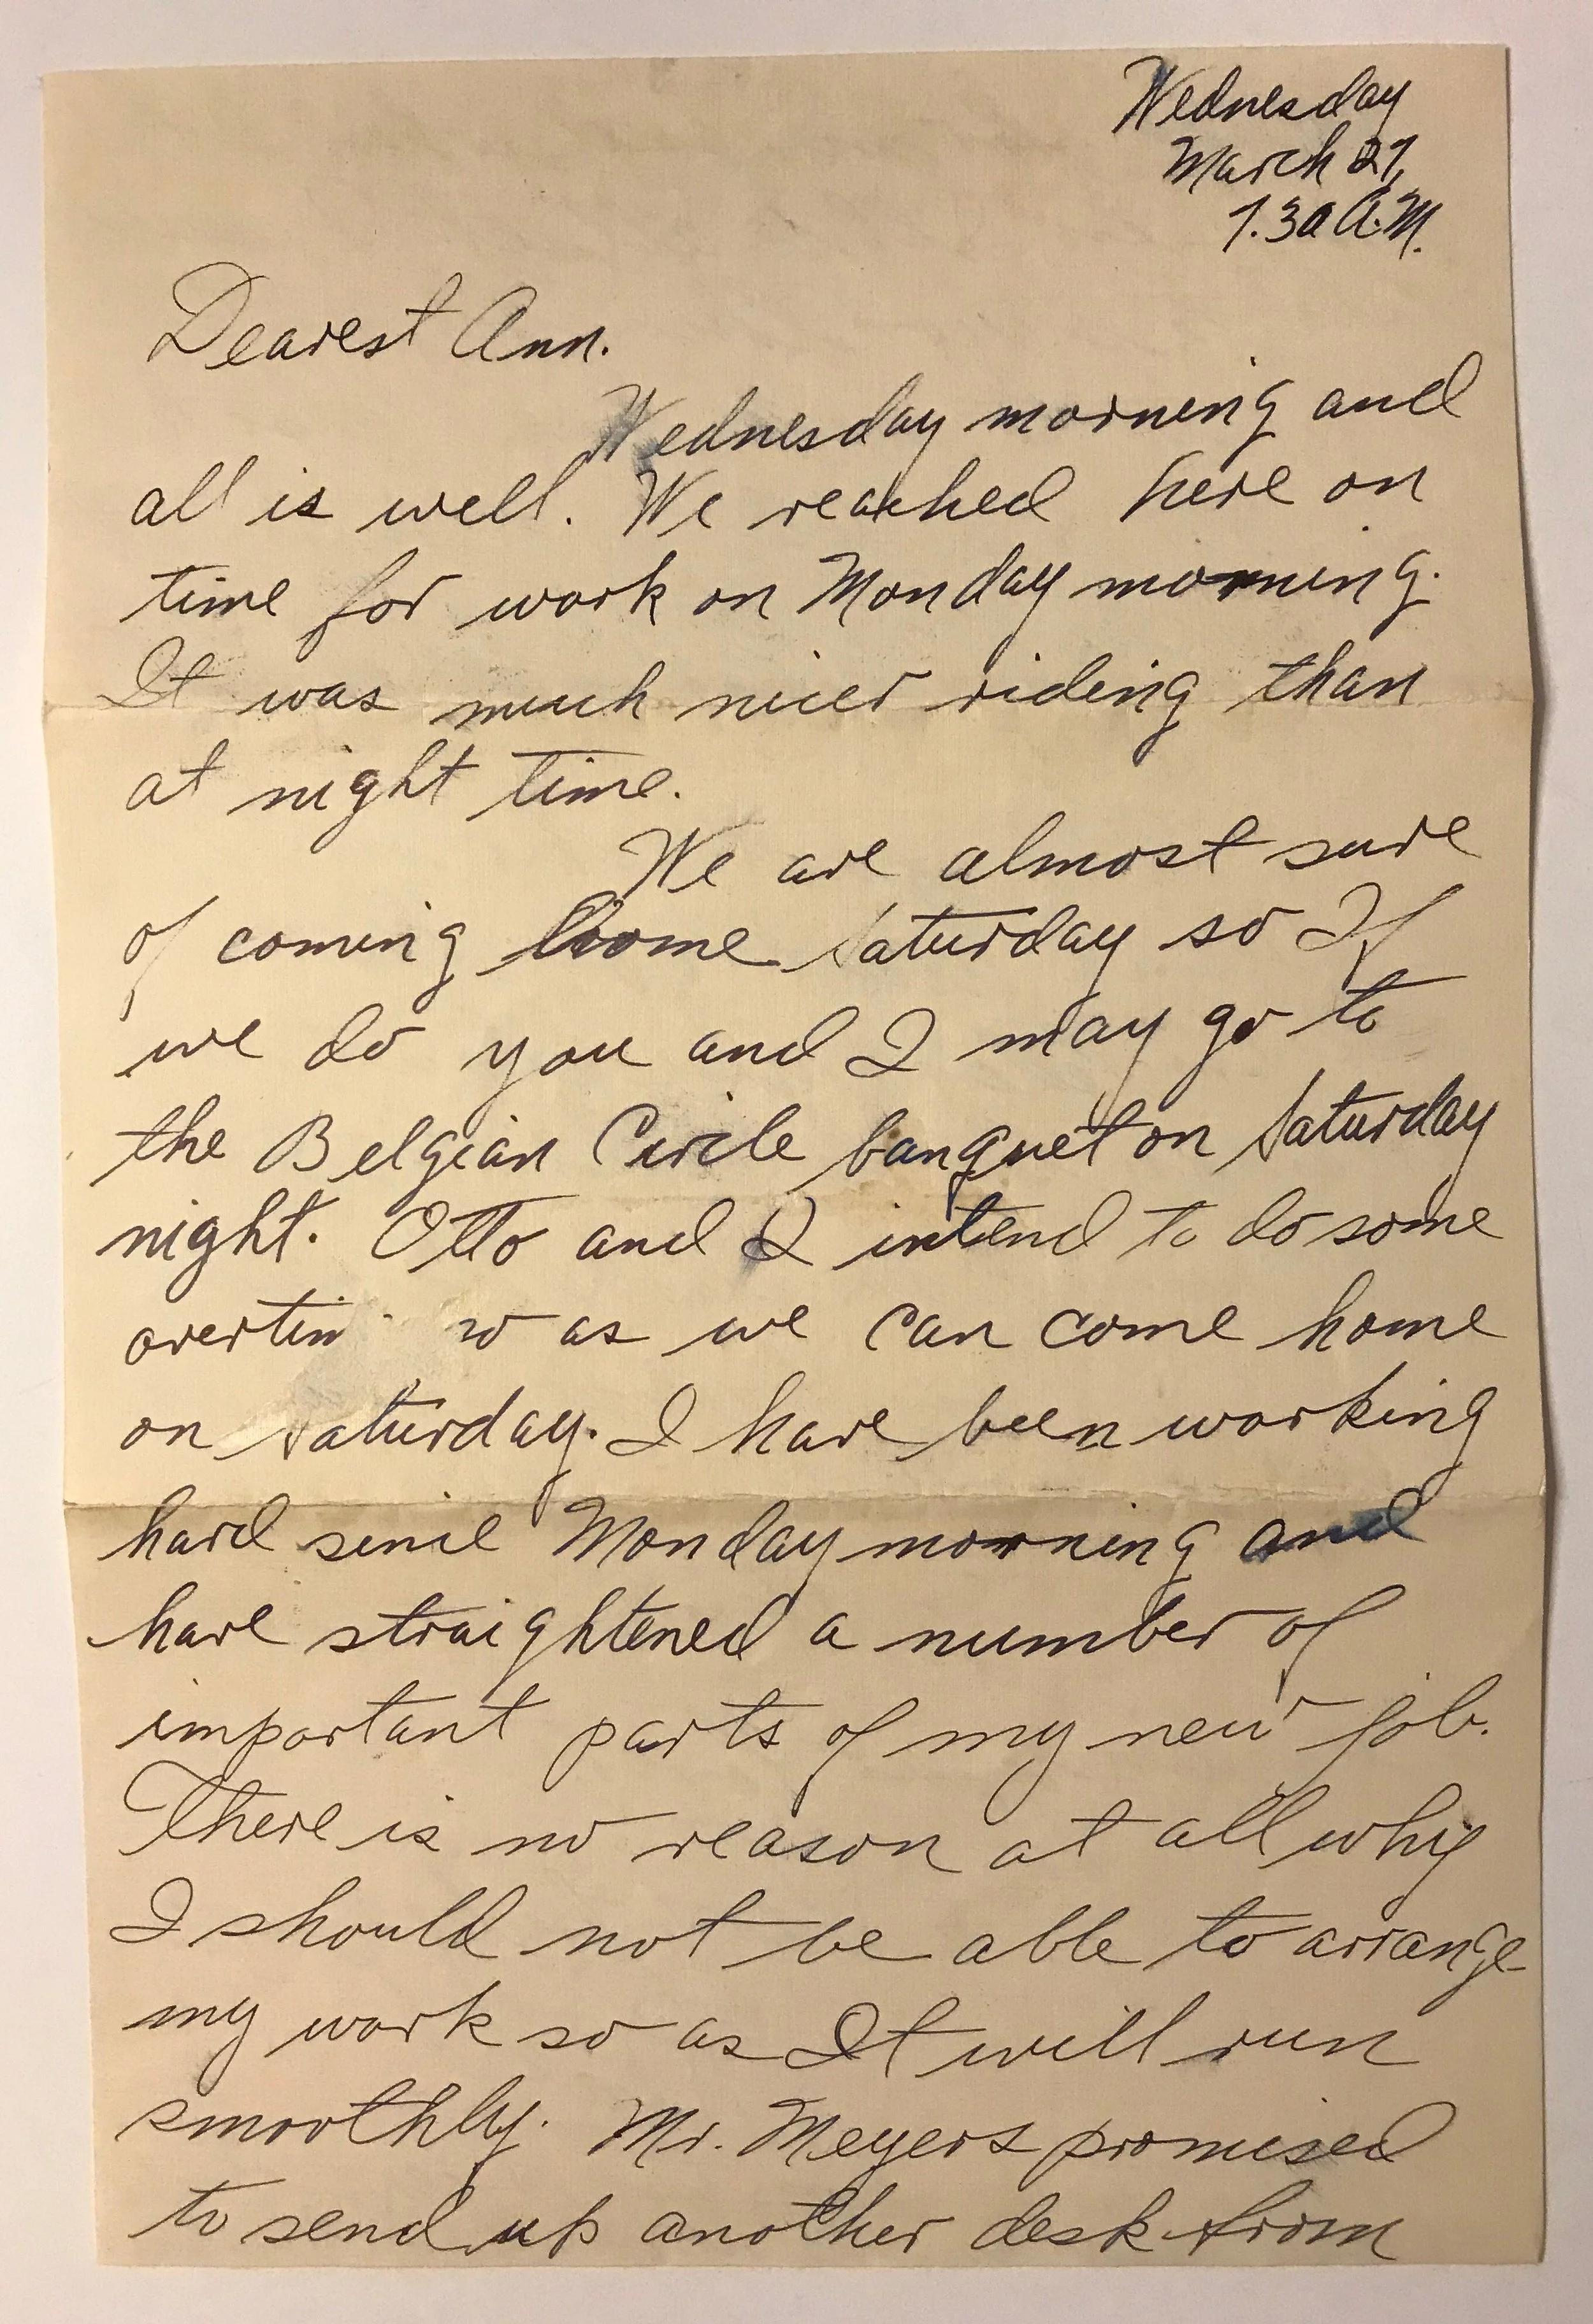 Wednesday
March 27,
7.30 A.M.
Dearest Ann.
Wednesday morning and
all is well. We reached here on
time for work on Monday morning.
It was much nicer riding than
at night time.
We are almost sure
of coming home Saturday so If
we do you and I may go to
the Belgian Circle banquet on Saturday
night. Otto and I intend to do some
overtim so as we can come home
on Saturday. I have been working
hard since Monday morning and
have straightened a number of
important parts of my new job.
There is no reason at all why
I should not be able to arrange
my work so as It will run
smoothly. Mr. Meyers promised
to send up another desk from